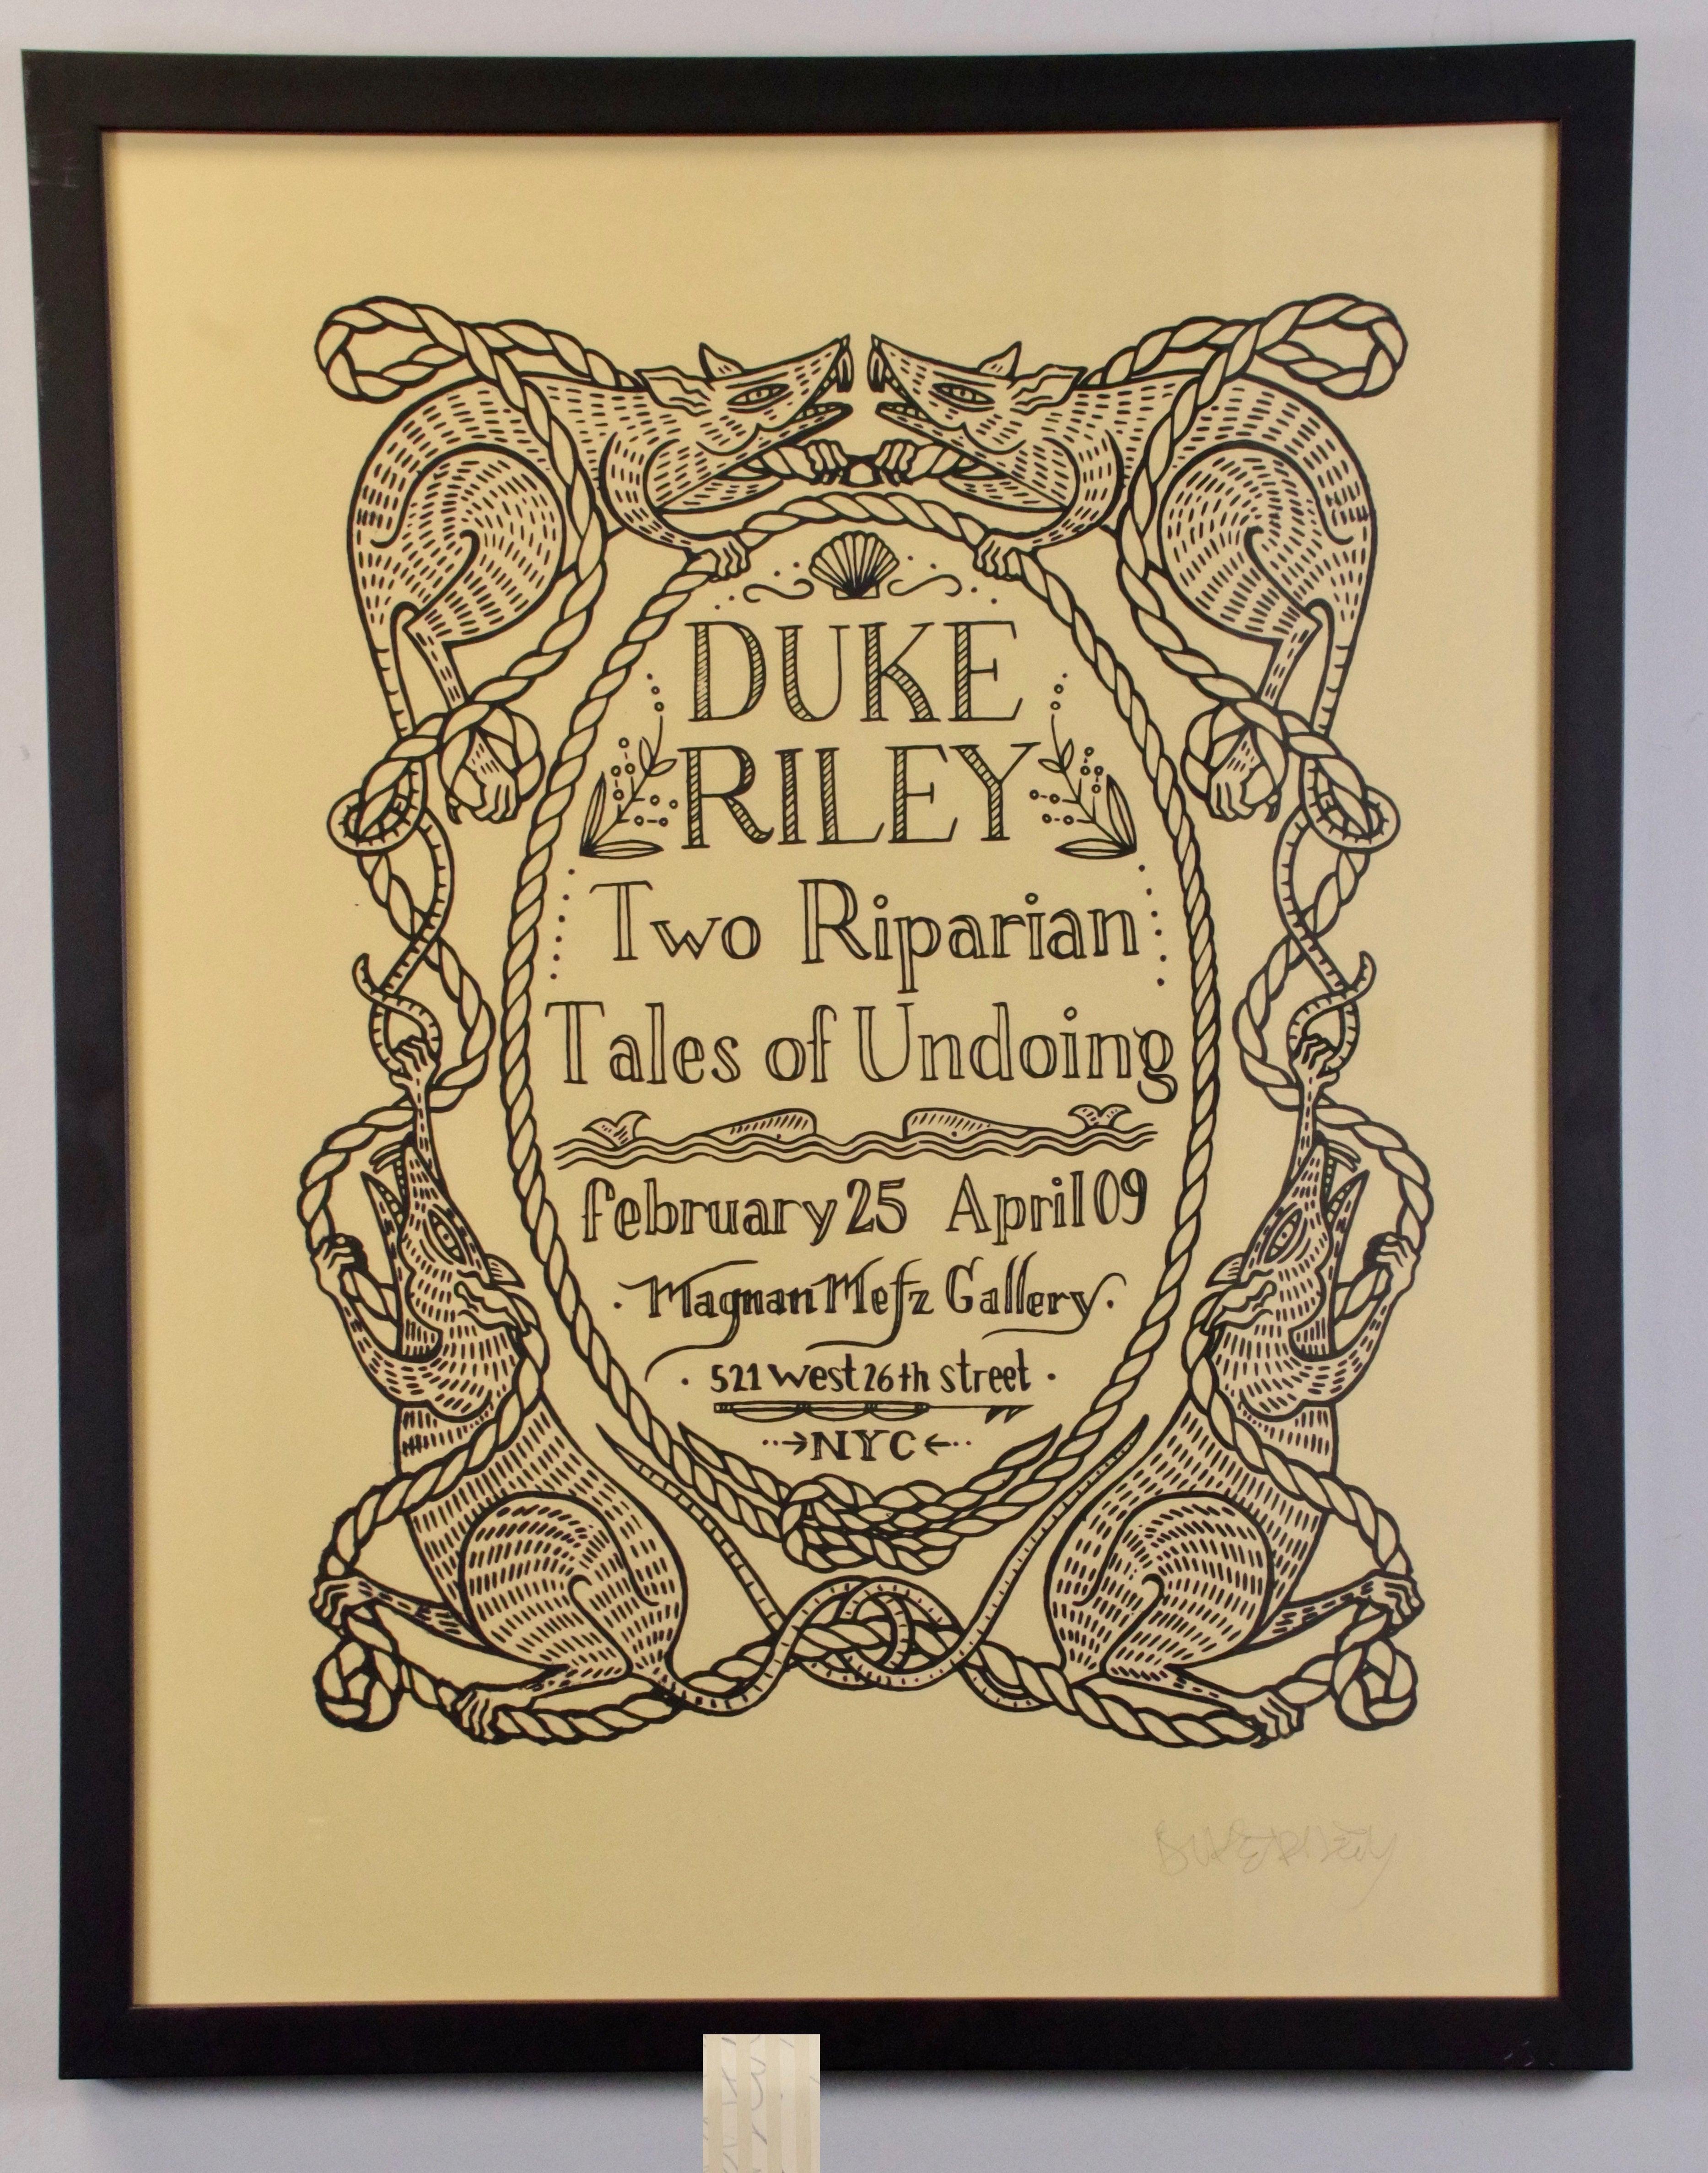 DUKE
RILEY
Two Riparian
Tales of Undoing
february 25 April 09
Magnan Metz Gallery
521 West 26th street
NYC
Duke Riley